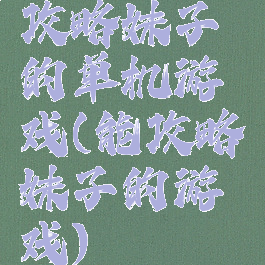 攻略妹子
的单机游
戏(能攻略
妹子的游
戏)